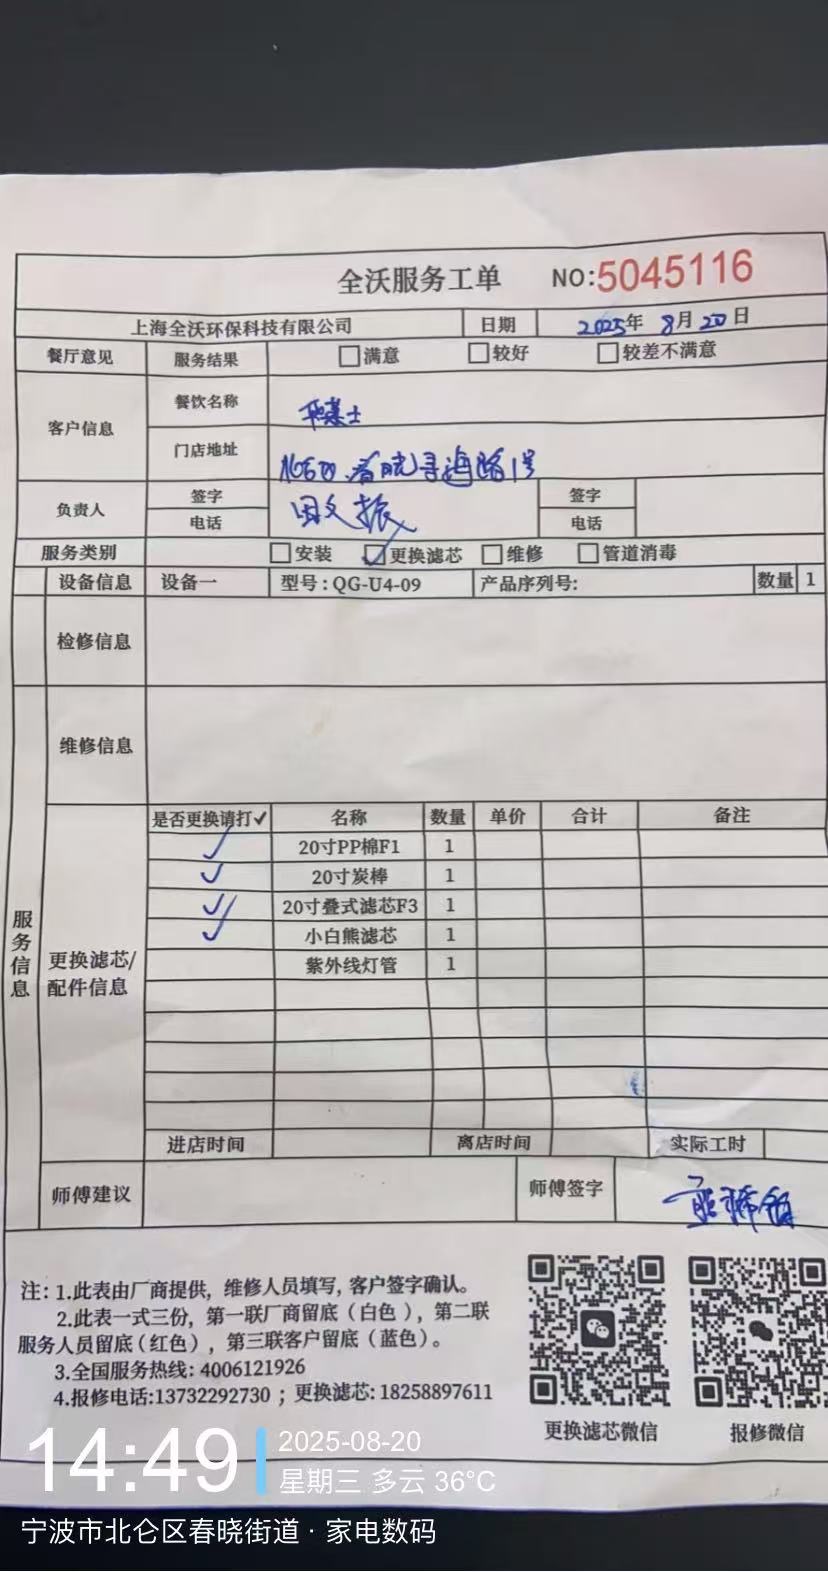 全沃服务工单 NO:5045116
上海全沃环保科技有限公司 日期 2025年 8月 20日
餐厅意见 服务结果 □满意 □较好 □较差不满意
客户信息 餐饮名称 士
门店地址 春晓 海路1号
负责人 签字 田文振 签字
电话 电话
服务类别 □安装 ☑更换滤芯 □维修 □管道消毒
设备信息 设备一 型号:QG-U4-09 产品序列号: 数量 1
检修信息
维修信息
服务信息
更换滤芯/配件信息
是否更换请打✓ 名称 数量 单价 合计 备注
✓ 20寸PP棉F1 1
✓ 20寸炭棒 1
✓ 20寸叠式滤芯F3 1
✓ 小白熊滤芯 1
紫外线灯管 1
进店时间 离店时间 实际工时
师傅建议 师傅签字
注:1.此表由厂商提供,维修人员填写,客户签字确认。
2.此表一式三份,第一联厂商留底(白色),第二联
服务人员留底(红色),第三联客户留底(蓝色)。
3.全国服务热线:4006121926
4.报修电话:13732292730;更换滤芯:18258897611
更换滤芯微信 报修微信
14:49 2025-08-20
星期三 多云 36°C
宁波市北仑区春晓街道·家电数码